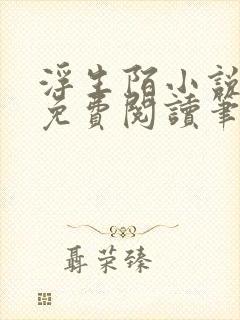 浮生陌小說
免費閱讀筆
聶荣臻